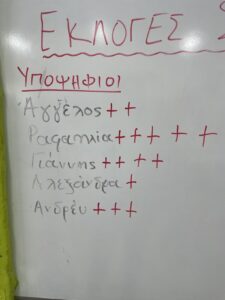 ΕΚΛΟΓΕΣ
ΥΠΟΨΗΦΙΟΙ
Άγγελος ++
Ραφαηλία +++ + +
Γιάννης ++ ++
Αλεξάνδρα +
Ανδρέυ +++